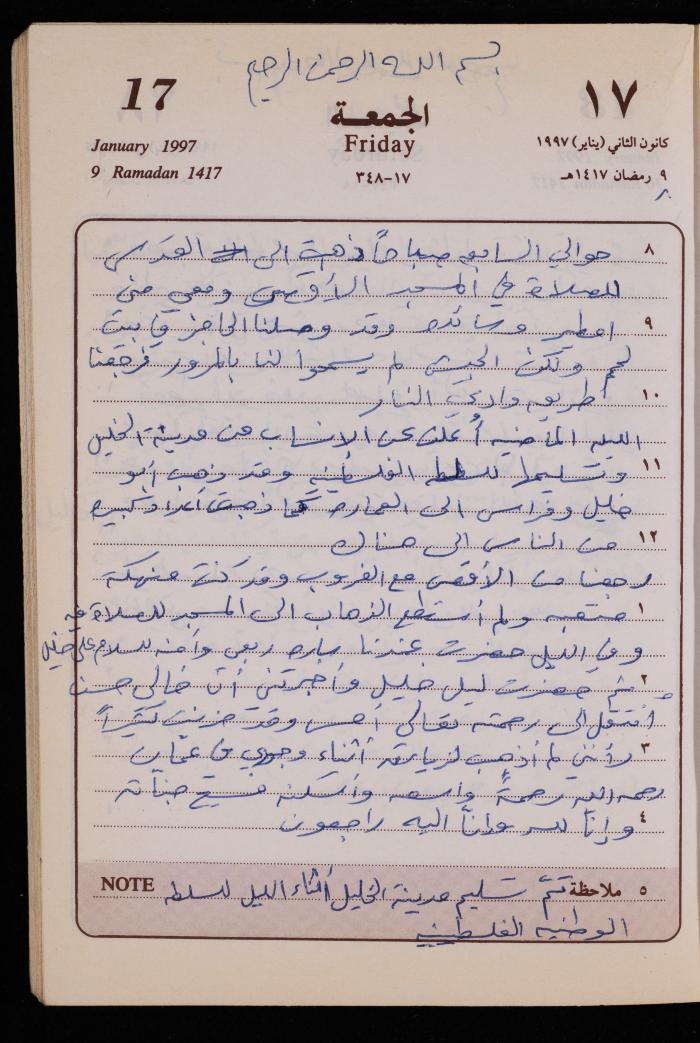 بسم الله الرحمن الرحيم
17
January 1997
9 Ramadan 1417
الجمعة
Friday
١٧-٣٤٨
١٧
كانون الثاني (يناير) ١٩٩٧
٩ رمضان ١٤١٧هـ
٨
٨ حوالي السابعه صباحاً ذهبت الى القدس
للصلاة في المسجد الأقصى ومعي منى
٩ وقد وصلنا الحاجز في بيت
لحم ولكن الجيش لم يسمحوا لنا بالمرور فرجعنا
١٠ طريق وادي النار
الليله الماضيه أعلن عن الانسحاب من مدينة الخليل
١١ وتسليمها للسلطه الفلسطينيه وقد ذهب أبو
خليل وفراس الى العماره كما ذهبت أعداد كبيره
١٢ من الناس الى هناك
رجعنا من الأقصى مع الغروب وقد كنت منهكة
١ متعبه ولم أستطع الذهاب الى المسجد للصلاة فيه
وفي الليل حضرت عندنا ساره ربعي للسلام على خليل
٢ ثم حضرت ليلى خليل وأخبرتني أن خالي حسن
أنتقل الى رحمته تعالى أمس وقد حزنت كثيراً
٣ لأنني لم أذهب لزيارته أثناء وجودي في عمان
رحمه الله رحمةً واسعه وأسكنه فسيح جنانه
٤ وإنا لله وإنا اليه راجعون
NOTE ٥ ملاحظة تمّ تسليم مدينة الخليل أثناء الليل للسلطه
الوطنيه الفلسطينيه